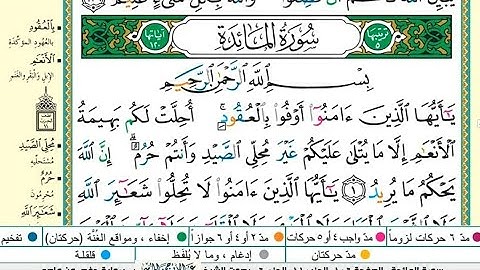 سُورَةُ المَائِدَة
ترتيبها ٥
آياتها ١٢٠
بِسْمِ ٱللَّهِ ٱلرَّحْمَٰنِ ٱلرَّحِيمِ
يَٰٓأَيُّهَا ٱلَّذِينَ ءَامَنُوٓا۟ أَوْفُوا۟ بِٱلْعُقُودِ ۚ أُحِلَّتْ لَكُم بَهِيمَةُ
ٱلْأَنْعَٰمِ إِلَّا مَا يُتْلَىٰ عَلَيْكُمْ غَيْرَ مُحِلِّى ٱلصَّيْدِ وَأَنتُمْ حُرُمٌ ۗ إِنَّ ٱللَّهَ
يَحْكُمُ مَا يُرِيدُ ١ يَٰٓأَيُّهَا ٱلَّذِينَ ءَامَنُوا۟ لَا تُحِلُّوا۟ شَعَٰٓئِرَ ٱللَّهِ
بِٱلْعُقُودِ
بالعهود المؤكدة
ٱلْأَنْعَٰمِ
الإبل والبقر والغنم
مُحِلِّى ٱلصَّيْدِ
مستحليه
حُرُمٌ
محرمون
شَعَٰٓئِرَ ٱللَّهِ
مدّ ٦ حركات لزوماً
مدّ ٢ أو ٤ أو ٦ جوازاً
إخفاء، ومواقع الغُنَّة (حركتان)
تفخيم
مدّ واجب ٤ أو ٥ حركات
مدّ حركتان
إدغام، وما لا يُلفَظ
قلقلة